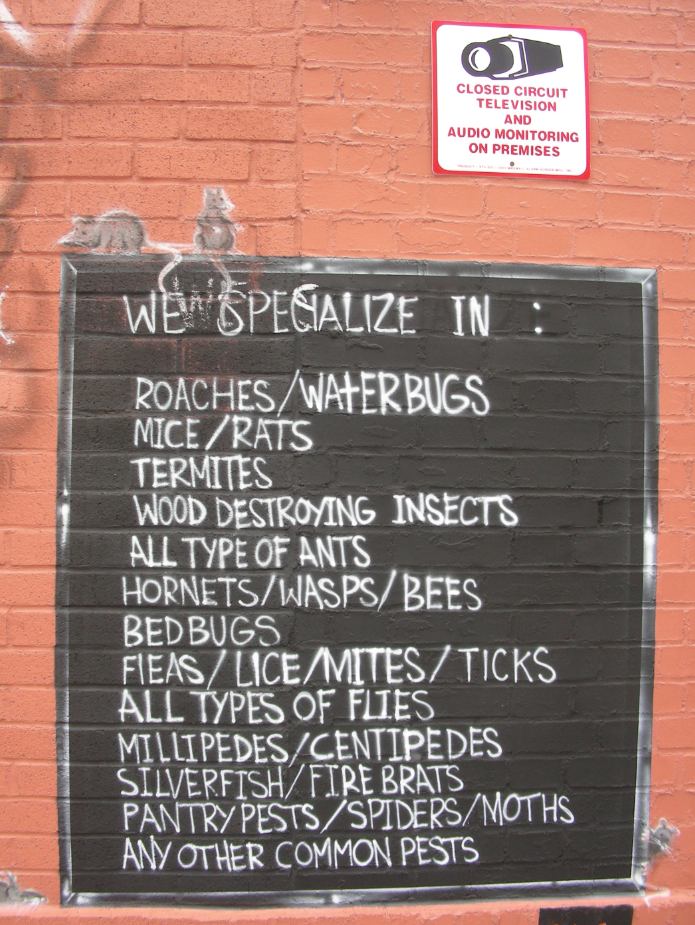 CLOSED CIRCUIT
TELEVISION
AND
AUDIO MONITORING
ON PREMISES
WE SPECIALIZE IN :
ROACHES/WATERBUGS
MICE/RATS
TERMITES
WOOD DESTROYING INSECTS
ALL TYPE OF ANTS
HORNETS/WASPS/BEES
BEDBUGS
FLEAS/LICE/MITES/TICKS
ALL TYPES OF FLIES
MILLIPEDES/CENTIPEDES
SILVERFISH/FIREBRATS
PANTRY PESTS/SPIDERS/MOTHS
ANY OTHER COMMON PESTS